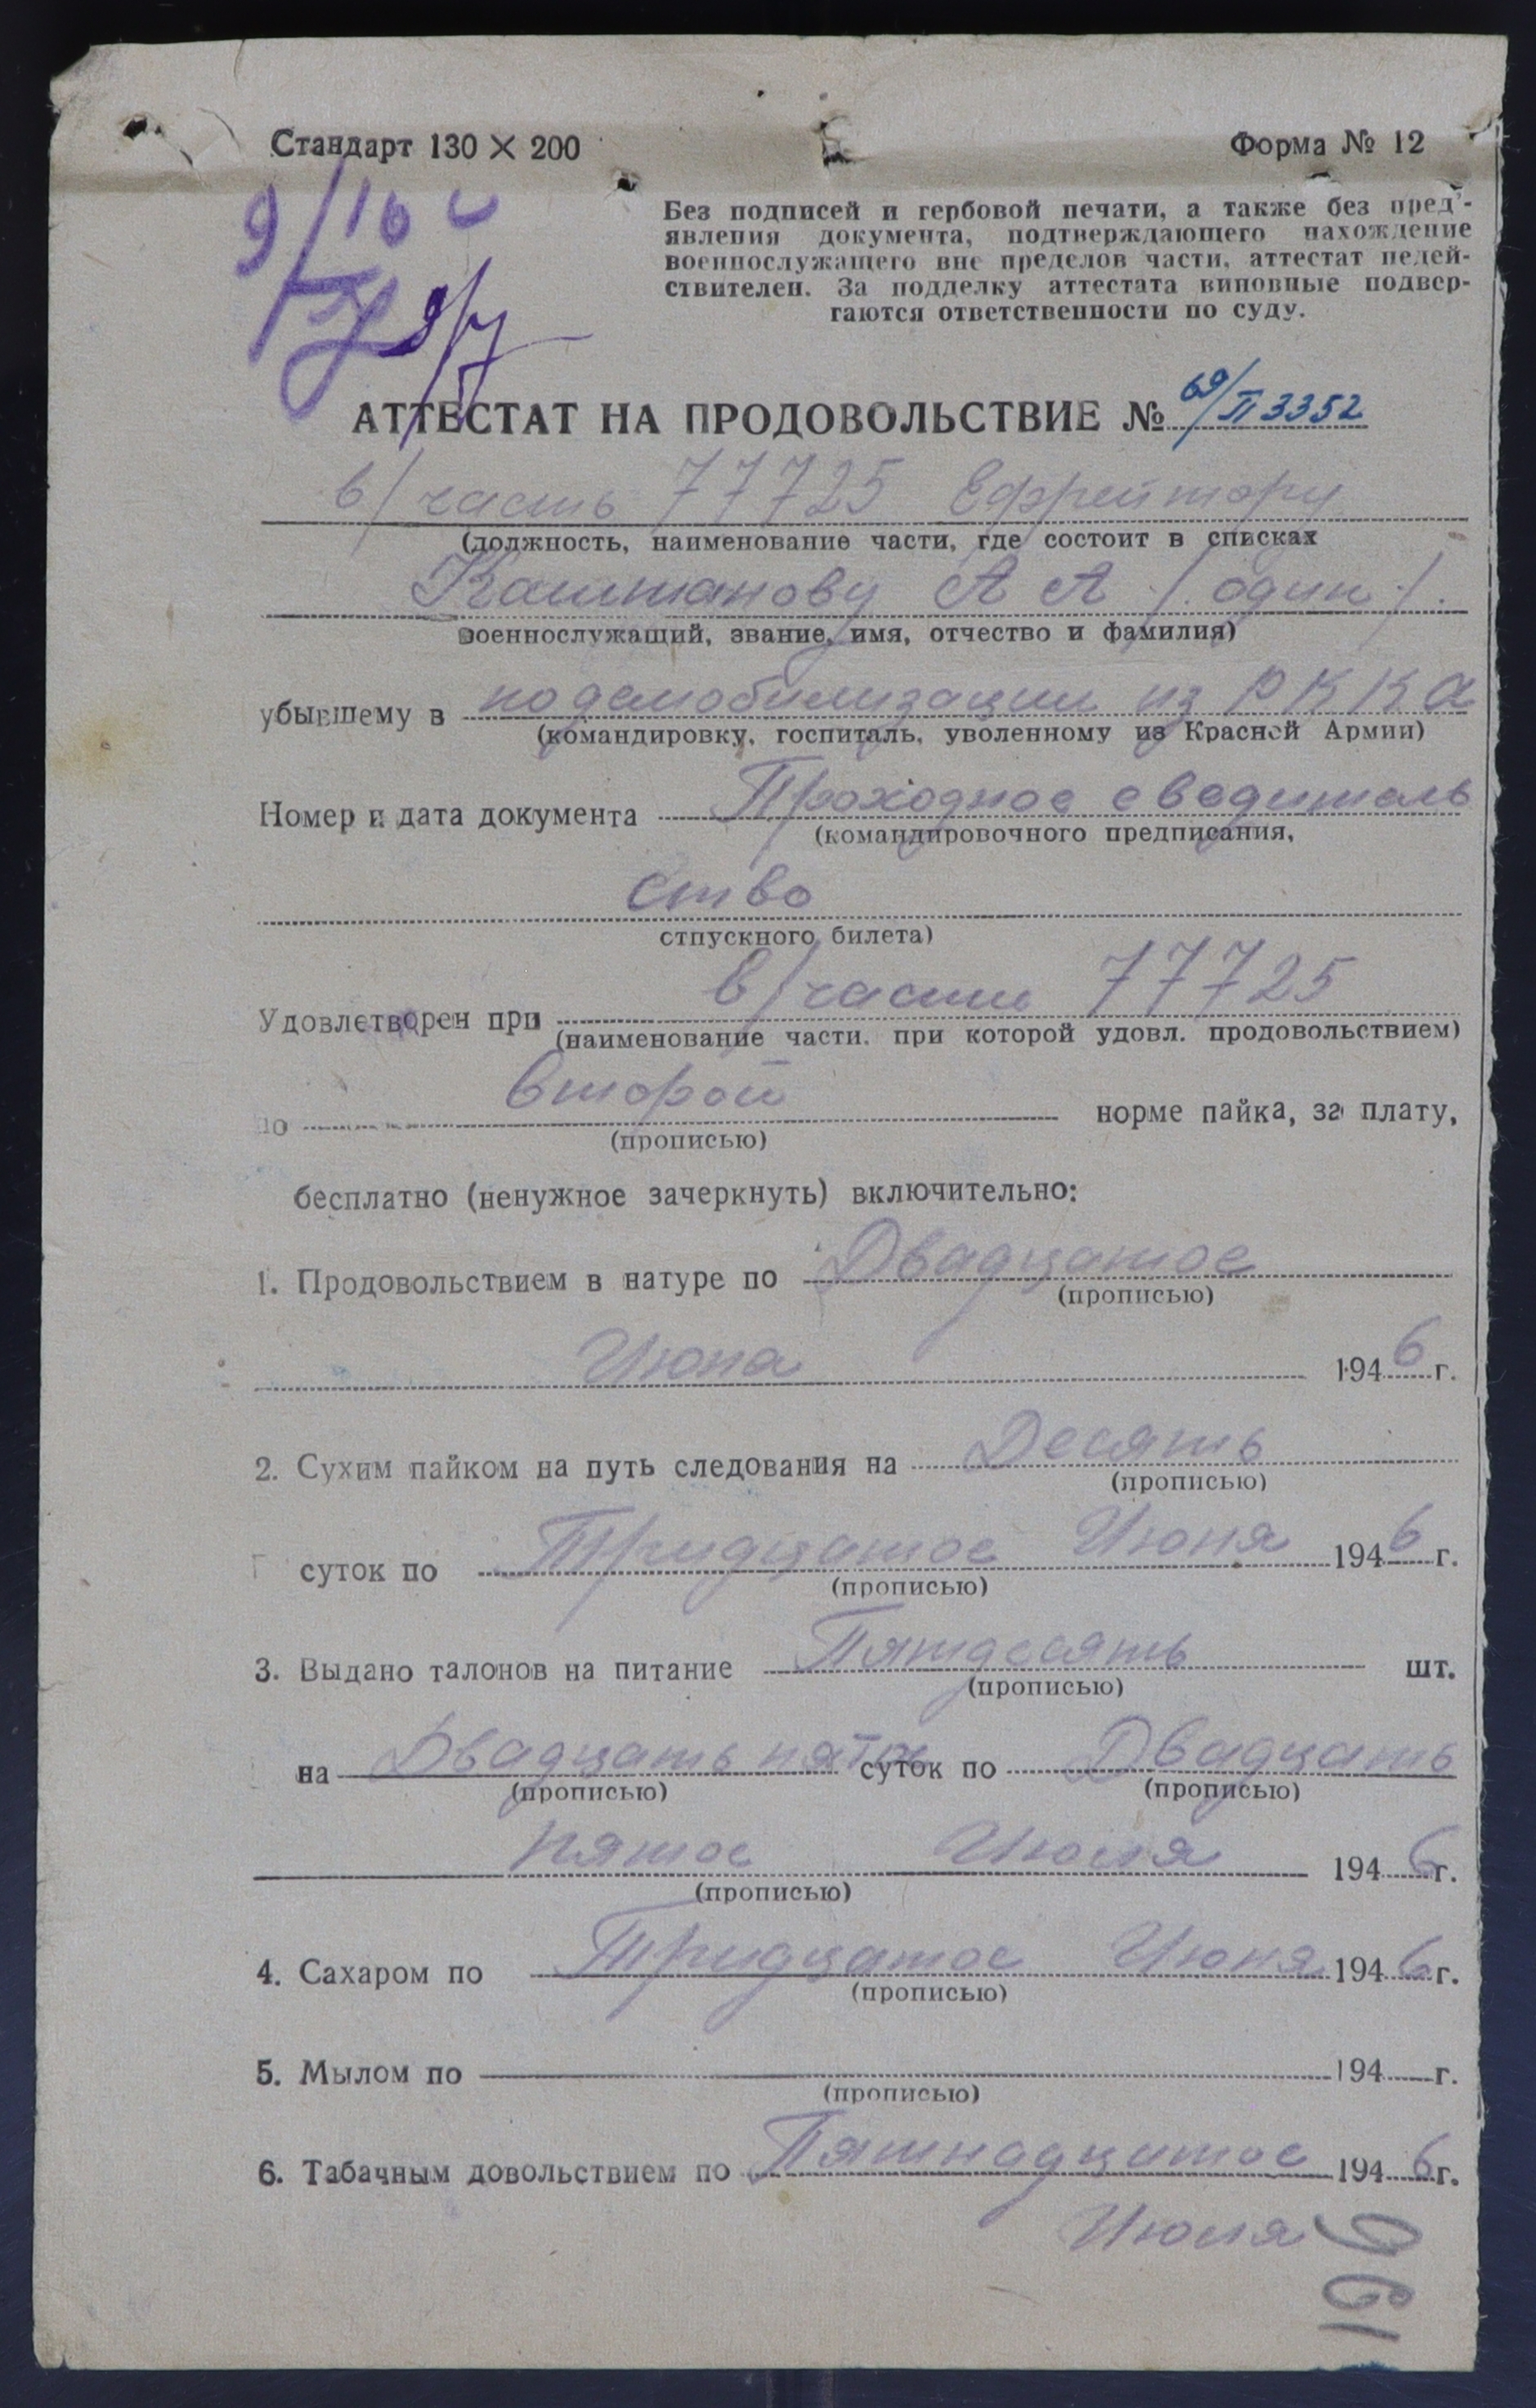 Стандарт 130 × 200
Форма № 12
Без подписей и гербовой печати, а также без пред'-
явления документа, подтверждающего нахождение
военнослужащего вне пределов части, аттестат недей-
ствителен. За подделку аттестата виновные подвер-
гаются ответственности по суду.
АТТЕСТАТ НА ПРОДОВОЛЬСТВИЕ № 69/П 3352
в/часть 77725 Ефрейтору
(должность, наименование части, где состоит в списках
Каштанову А А /. один /.
военнослужащий, звание, имя, отчество и фамилия)
убывшему в по демобилизации из РККА
(командировку, госпиталь, уволенному из Красной Армии)
Номер и дата документа Проходное сведитель
(командировочного предписания,
ство
отпускного билета)
Удовлетворен при в/части 77725
(наименование части. при которой удовл. продовольствием)
по второй норме пайка, за плату,
(прописью)
бесплатно (ненужное зачеркнуть) включительно:
1. Продовольствием в натуре по Двадцатое
(прописью)
Июна 1946 г.
2. Сухим пайком на путь следования на Десять
(прописью)
суток по Тридцатое Июня 1946 г.
(прописью)
3. Выдано талонов на питание Пятдесять шт.
(прописью)
на Двадцать пять суток по Двадцать
(прописью) (прописью)
пятое Июля 1946 г.
(прописью)
4. Сахаром по Тридцатое Июня 1946 г.
(прописью)
5. Мылом по 194 г.
(прописью)
6. Табачным довольствием по Пятнадцатое 1946 г.
Июля
196